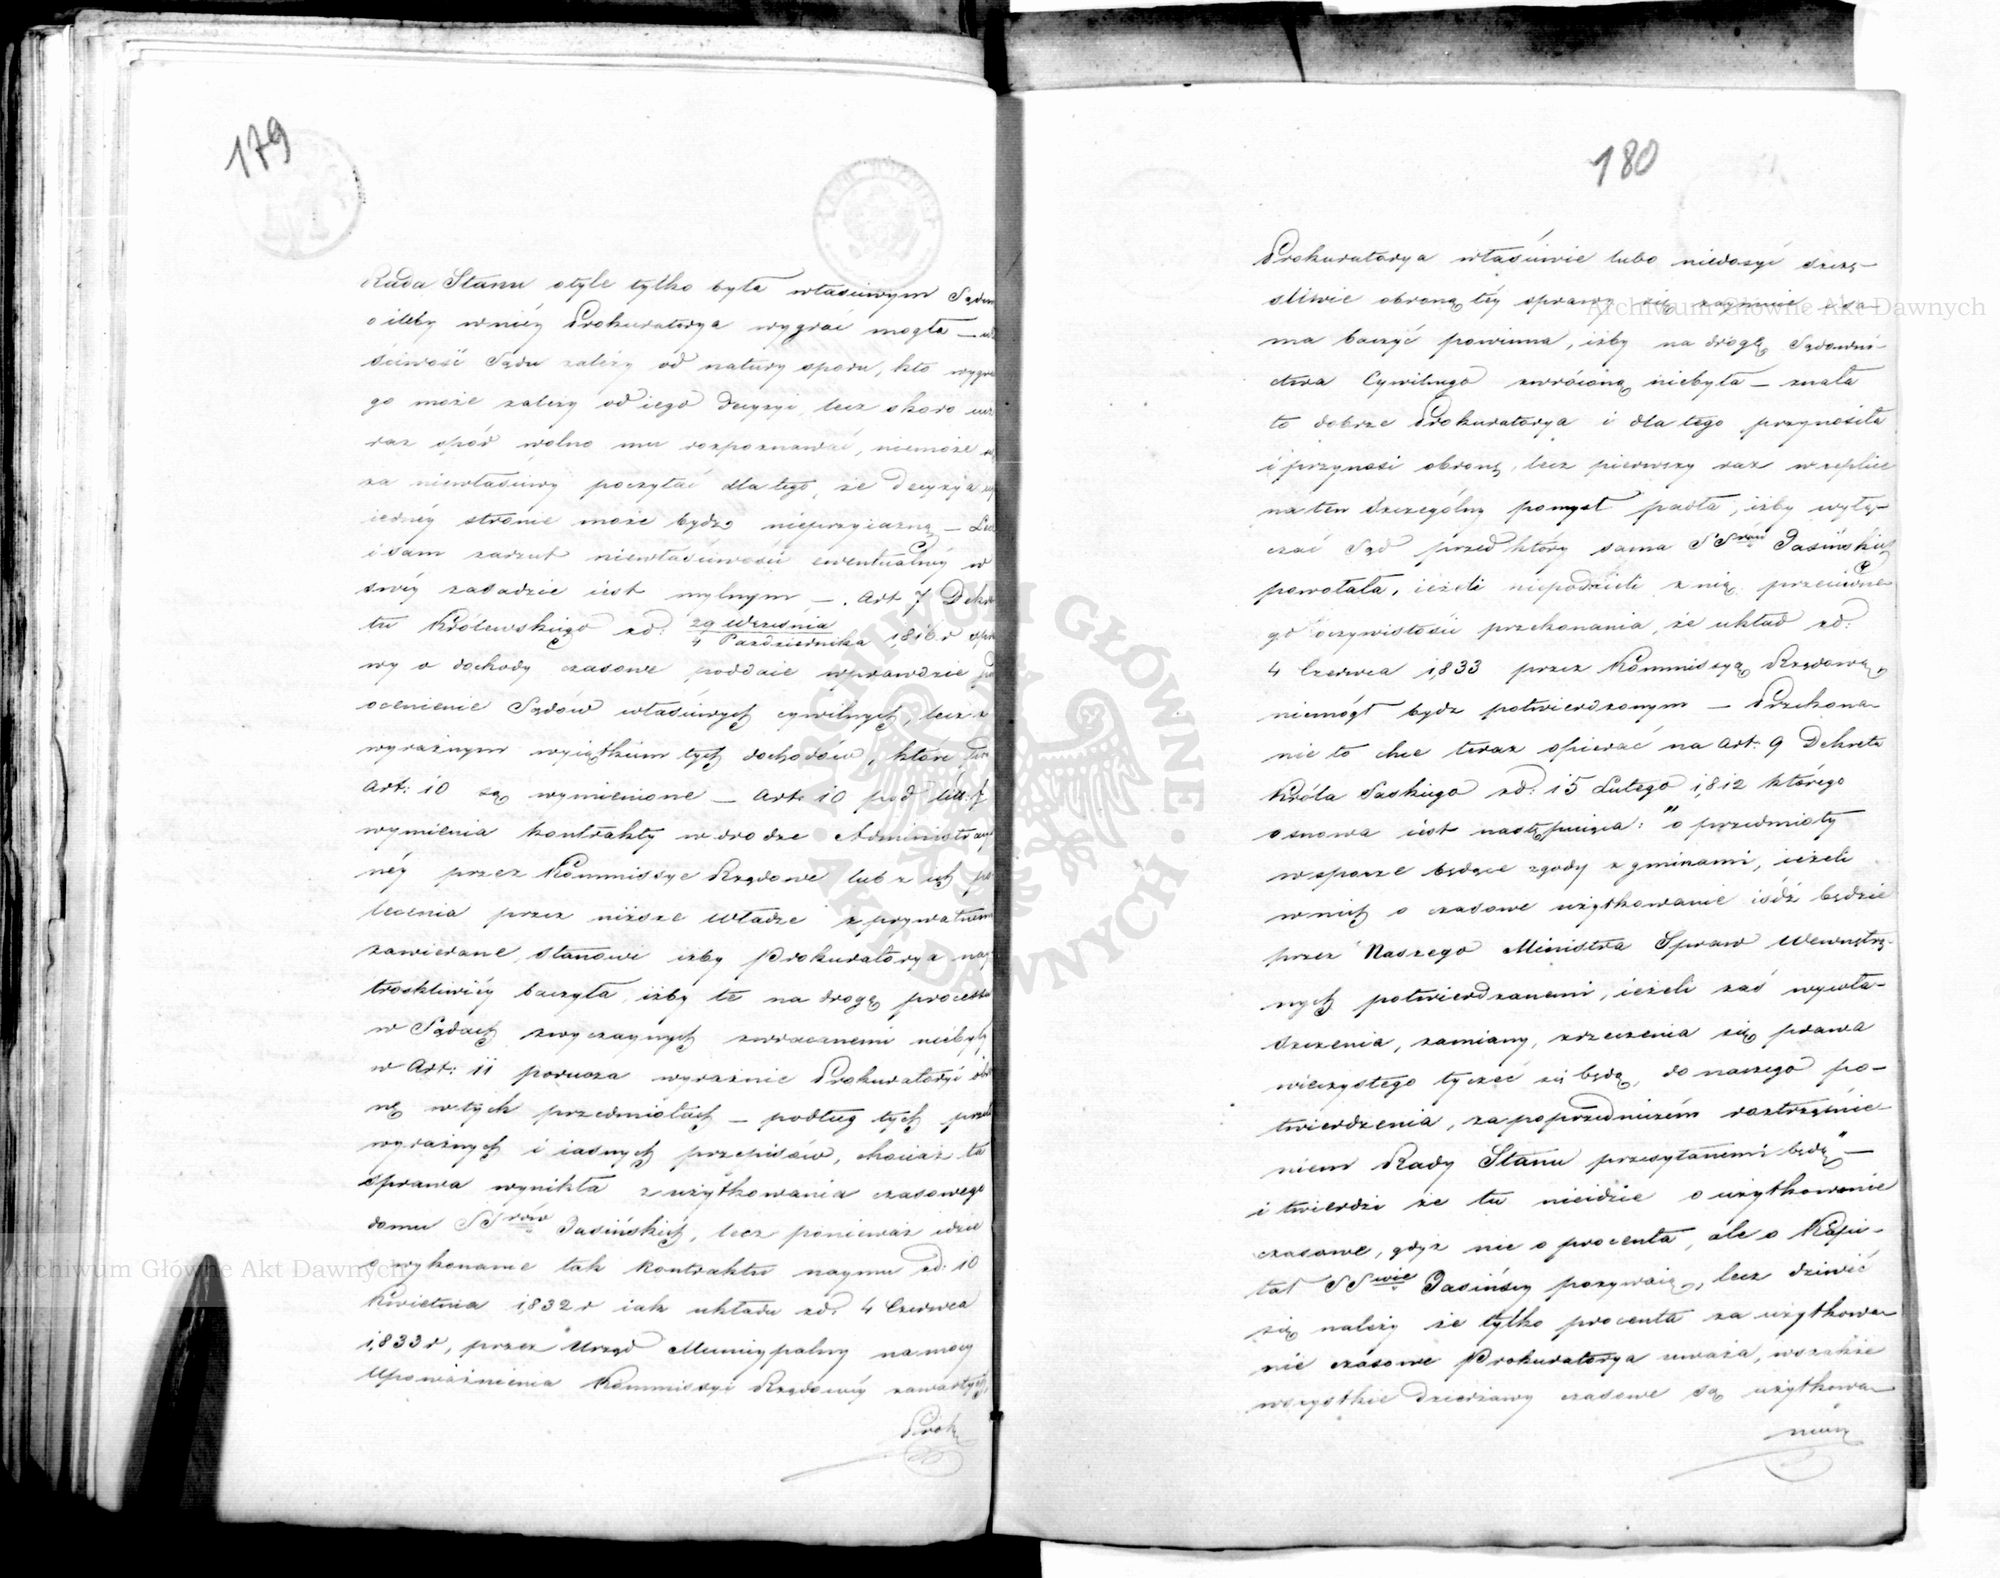 179
Rada Stanu otyle tylko była właściwym Sądem
o ileby w niéy Prokuratorya wygrać mogła —
ściwość Sądu zależy od natury sporu, kto wygra
go może zależy od iego decyzyi, lecz skoro
raz spór wolno mu rozpoznawać, niemoże
za niewłaściwy poczytać dla tego, że decyzyia
iednéy stronie może bydź nieprzyiazną — Lecz
i sam zarzut niewłaściwości ewentualnéy w
swéy zasadzie iest mylnym —. Art 7 Dekre
tu Królewskiego zd: 29 Września / 4 Października 1816 r spra
wy o dochody czasowe poddaie wprawdzie pod
ocenienie Sądów właściwych cywilnych, lecz z
wyraźnym wyiątkiem tych dochodów, które
Art: 10 są wymienione — Art: 10 pod litt: f
wymienia kontrakty w drodze Administracyi
néy przez Kommissye Rządowe lub z ich po
lecenia przez niższe Władze z prywatnemi
zawierane, stanowi iżby Prokuratorya nay
troskliwiéy baczyła, iżby te na drogę processu
w Sądach zwyczaynych zwracanemi niebyły
w Art: 11 porucza wyraźnie Prokuratoryi obro
nę w tych przedmiotach — podług tych
wyraźnych i iasnych przepisów, chociaż ta
sprawa wynikła z użytkowania czasowego
domu SSrów Jasińskich, lecz ponieważ idzie
o wykonanie tak kontraktu naymu zd: 10
Kwietnia 1832 r iak układu zd: 4 Czerwca
1833 r, przez Urząd Municypalny na mocy
Upoważnienia Kommissyi Rządowéy zawartych,
Prok
180
Prokuratorya właściwie lubo niedosyć szczę-
śliwie obroną téy sprawy się zaymuie i sa-
ma baczyć powinna, iżby na drogę Sądowni-
ctwa Cywilnego zwróconą niebyła — znała
to dobrze Prokuratorya i dla tego przynosiła
i przynosi obronę, lecz pierwszy raz w replice
na ten szczególny pomysł padła, iżby wyłą-
czać Sąd przed który sama SSrów Jasińskich
powołała, ieżeli niepodzieli z nią przeciwne-
go oczywistości przekonania, że układ zd:
4 Czerwca 1833 przez Kommissyą Rządową,
niemógł bydz potwierdzonym — Przekona-
nie to chce teraz opierać na Art: 9 Dekretu
Króla Saskiego zd: 15 Lutego 1812 którego
osnowa iest następuiąca: "o przedmioty
w sporze będące zgody z gminami, ieżeli
w nich o czasowe użytkowanie iśdź będzie
przez Naszego Ministra Spraw Wewnętrz-
nych potwierdzanemi, ieżeli zaś wywła-
szczenia, zamiany, zrzeczenia się prawa
wieczystego tyczeć się będą, do naszego po-
twierdzenia, za poprzedniczém roztrząśnie-
niem Rady Stanu przesyłanemi będą" —
i twierdzi że tu nieidzie o użytkowanie
czasowe, gdyż nie o procenta, ale o Kapi-
tał SSwie Jasińscy pozywaią, lecz dziwić
się należy że tylko procenta za użytkowa-
nie czasowe Prokuratorya uważa, wszakże
wszystkie dzierżawy czasowe są użytkowa-
niem
Archiwum Główne Akt Dawnych
Archiwum Główne Akt Dawnych
ARCHIWUM GŁÓWNE AKT DAWNYCH